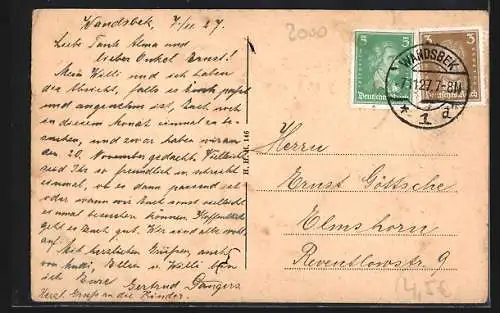 Wandsbek, 7/11. 27.
Liebe Tante Alma und
lieber Onkel Ernst!
Mein Willi und ich haben
die Absicht, falls es Euch paßt
und angenehm ist, Euch noch
in diesem Monat einmal zu be-
suchen, und zwar haben wir an den
20. November gedacht. Vielleicht
seid Ihr so freundlich u. schreibt
einmal, ob es dann passend ist
oder wann wir Euch sonst vielleicht
einmal besuchen können. Hoffentlich
geht es Euch gut. Wir sind alle wohl
auf.
Mit herzlichen Grüßen, auch
von Mutti, Ellen u. Willi bin
ich Eure Gertrud Dangers
Herzl. Gruß an die Kinder.
H. H. M. 146
2000
5 5
Deutsches Reich
3 3
Deutsches Reich
WANDSBEK
7.11.27.7-8N
* 1 a
Herrn
Ernst Göttsche
Elmshorn
Reventlowstr. 9